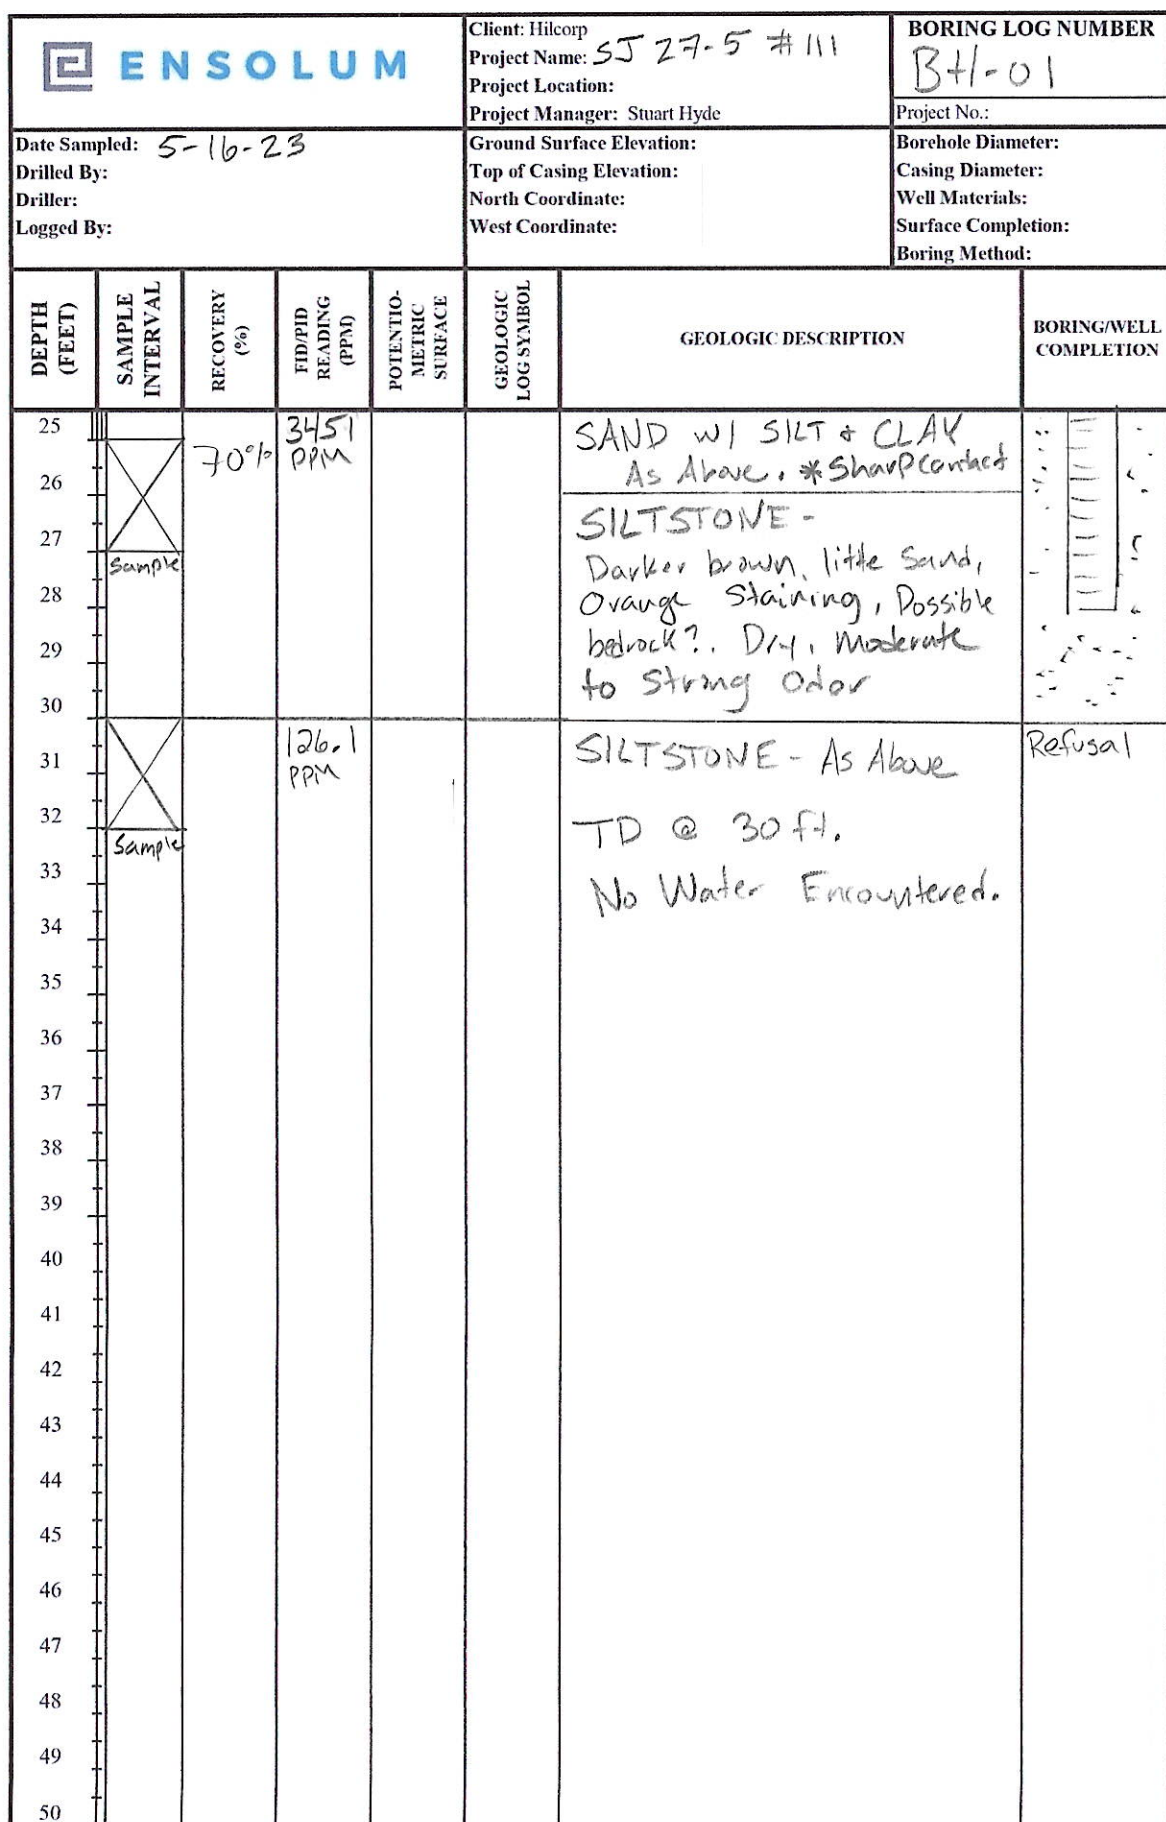 ENSOLUM
Client: Hilcorp
Project Name: SJ 27-5 #111
Project Location:
Project Manager: Stuart Hyde
BORING LOG NUMBER
BH-01
Project No.:
Date Sampled: 5-16-23
Drilled By:
Driller:
Logged By:
Ground Surface Elevation:
Top of Casing Elevation:
North Coordinate:
West Coordinate:
Borehole Diameter:
Casing Diameter:
Well Materials:
Surface Completion:
Boring Method:
DEPTH
(FEET)
SAMPLE
INTERVAL
RECOVERY
(%)
FID/PID
READING
(PPM)
POTENTIO-
METRIC
SURFACE
GEOLOGIC
LOG SYMBOL
GEOLOGIC DESCRIPTION
BORING/WELL
COMPLETION
25
26
27
28
29
30
31
32
33
34
35
36
37
38
39
40
41
42
43
44
45
46
47
48
49
50
Sample
Sample
70%
3451
PPM
126.1
PPM
SAND w/ SILT & CLAY
As Above. *Sharp Contact
SILTSTONE -
Darker brown, little Sand,
Orange Staining, Possible
bedrock?. Dry, Moderate
to Strong Odor
SILTSTONE - As Above
TD @ 30 ft.
No Water Encountered.
Refusal